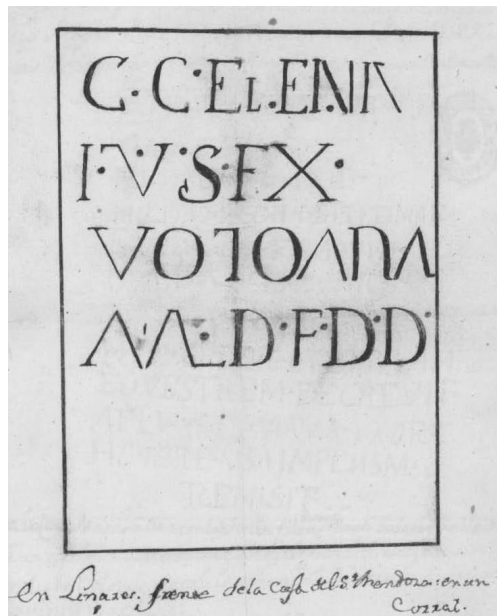 C·C·EL·ENIA
I·V·S·FX·
VOTOANA
M·D·F·D·D·
En Linares. frente de la Casa del Sr. Mendoza: en un
Corral.